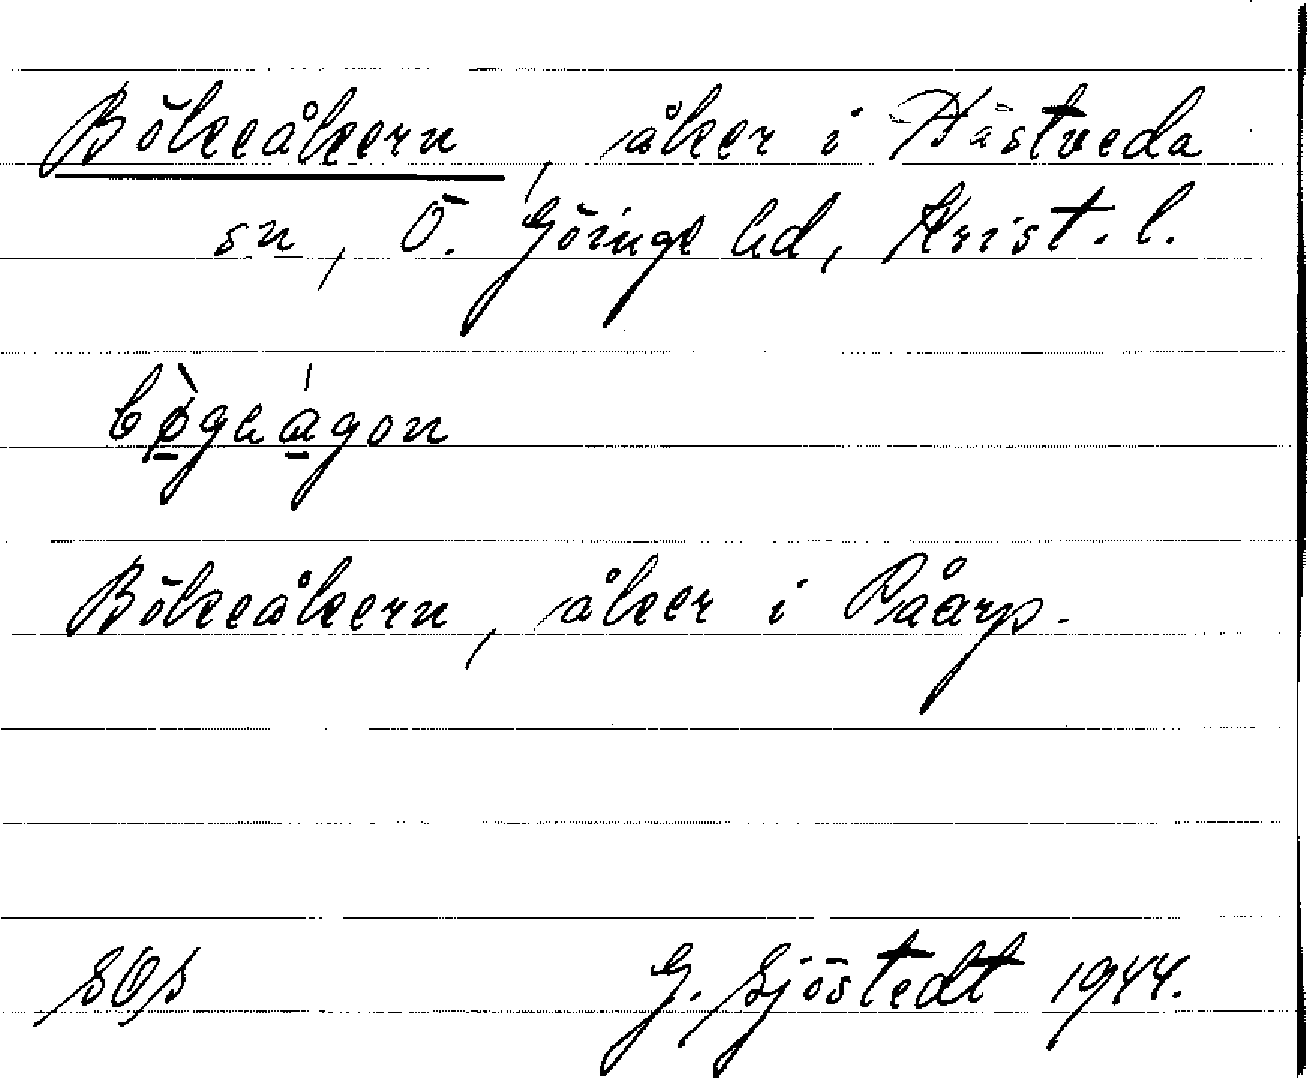 Bökeåkern, åker i Hästveda
sn, Ö. Göinge hd, Krist. l.
Bökeåkern, åker i Råarp.
SOS G. Sjöstedt 1944.